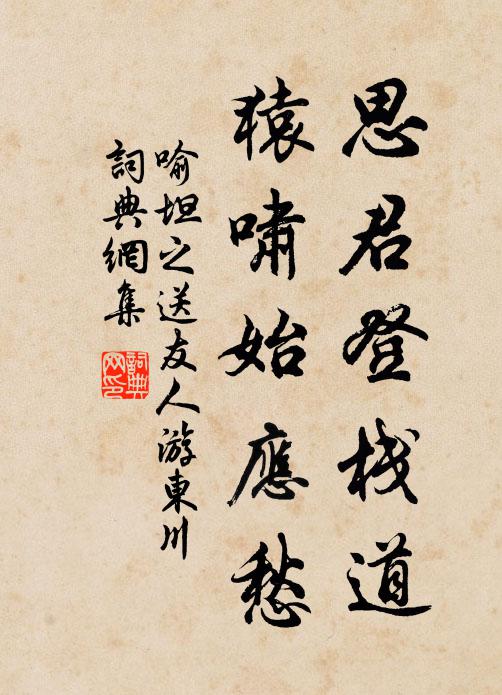 思君登栈道
猿嘯始應愁
喻坦之送友人游東川
詞典網集
詞典網印